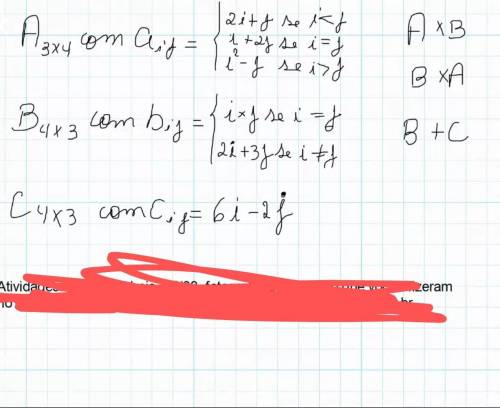 A3x4 com aij = { 2i+j se i<j
i+2j se i=j
i²-j se i>j
A x B
B x A
B4x3 com bij = { i x j se i = j
2i+3j se i ≠ j
B + C
C4x3 com Cij = 6i - 2j
Atividade